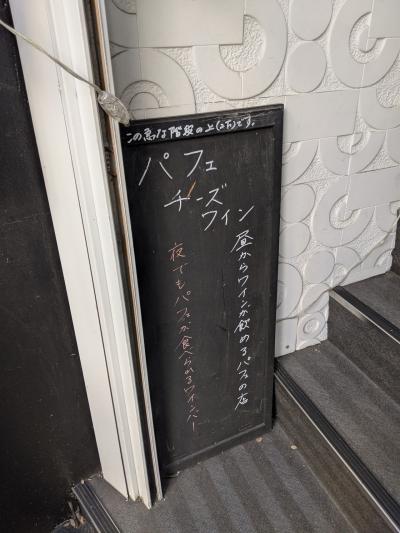 この急な階段の上(2F)です。
パフェ
チーズ
ワイン
昼からワインが飲めるパフェの店
夜でもパフェが食べられるワインバー